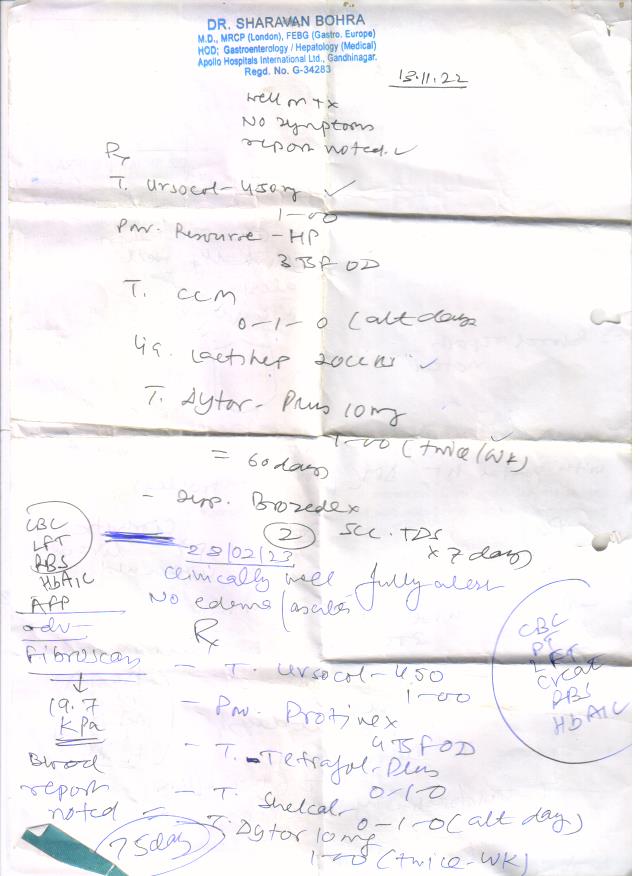 DR. SHARAVAN BOHRA
M.D., MRCP (London), FEBG (Gastro. Europe)
HOD; Gastroenterology / Hepatology (Medical)
Apollo Hospitals International Ltd., Gandhinagar.
Regd. No. G-34283
13.11.22
well on tx
No symptoms
report noted. ✓
Rx
T. Ursocol-450mg ✓
1-0-0
Pow. Resource - HP
3 TSF OD
T. CCM
0-1-0 (alt days
Liq. Lactihep 20cc HS ✓
T. Dytor-Plus 10mg
1-0-0 (twice/WK)
= 60 days
- Syp. Brozedex
2 5cc. TDS
x 7 days
CBC
LFT
RBS
HbA1C
AFP
28/02/23
Clinically well fully alert
No edema/ascites
adv-
Fibroscan
19.7
KPa
Blood
report
noted
Rx
- T. Ursocol-450
1-0-0
- Pow. Protinex
4 TSF OD
- T. Tetrafol-Plus
0-1-0
- T. Shelcal
0-1-0 (alt day)
- T. Dytor 10mg
1-0-0 (twice-WK)
75 day
CBC
PT
LFT
Creat
RBS
HbA1C